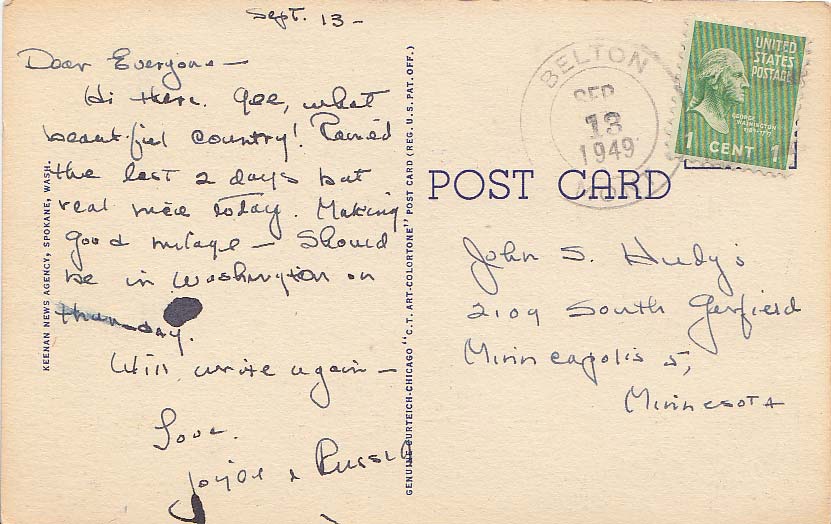 Sept. 13 -
Dear Everyone -
Hi there. Gee, what
beautiful country! Rained
the last 2 days but
real nice today. Making
good milage - Should
be in Washington on
thursday.
Will write again -
Love.
Joyce & Russell
KEENAN NEWS AGENCY, SPOKANE, WASH.
GENUINE CURTEICH-CHICAGO "C.T. ART-COLORTONE" POST CARD (REG. U.S. PAT. OFF.)
BELTON
SEP
13
1949
MONT
UNITED
STATES
POSTAGE
GEORGE
WASHINGTON
1 CENT 1
POST CARD
John S. Hudy's
2109 South Garfield
Minneapolis 5,
Minnesota